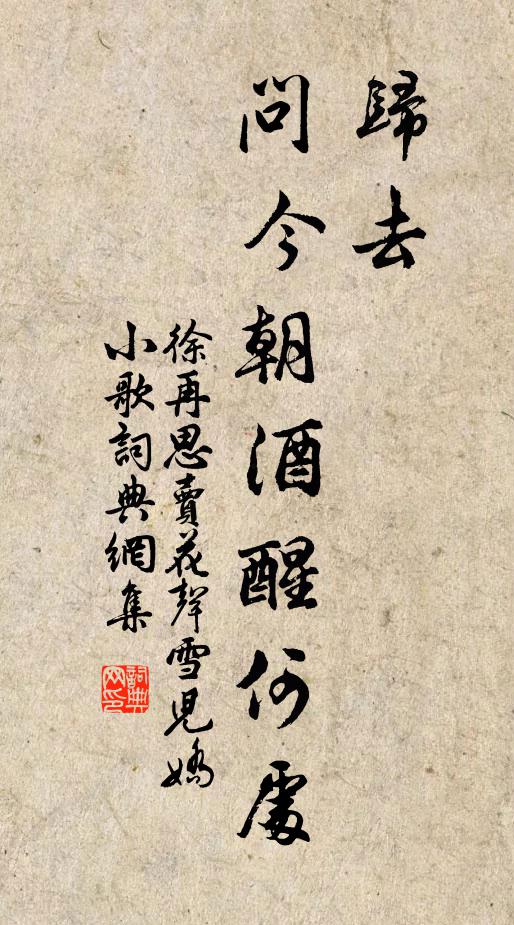 歸去
問今朝酒醒何處
徐再思賣花聲雪兒嬌
小歌詞典網集
詞典
网印